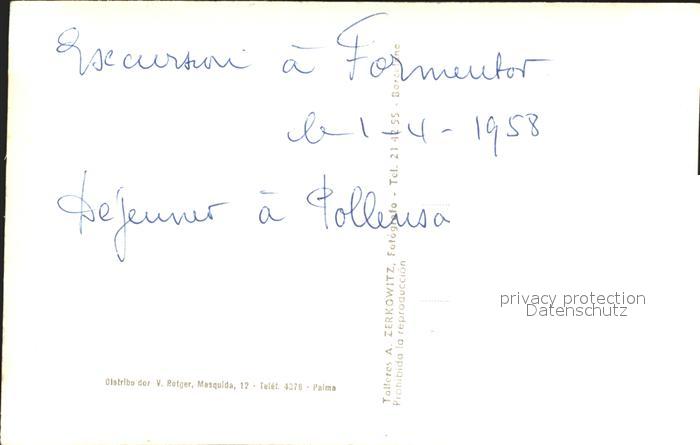 Excursion à Formentor
le 1-4-1958
Déjeuner à Pollensa
Talleres A. ZERKOWITZ, Fotógrafo - Tel. 21 - Barcelona
Prohibida la reproducción
privacy protection
Datenschutz
Distribuidor V. Rotger, Mesquida, 12 - Teléf. 4376 - Palma